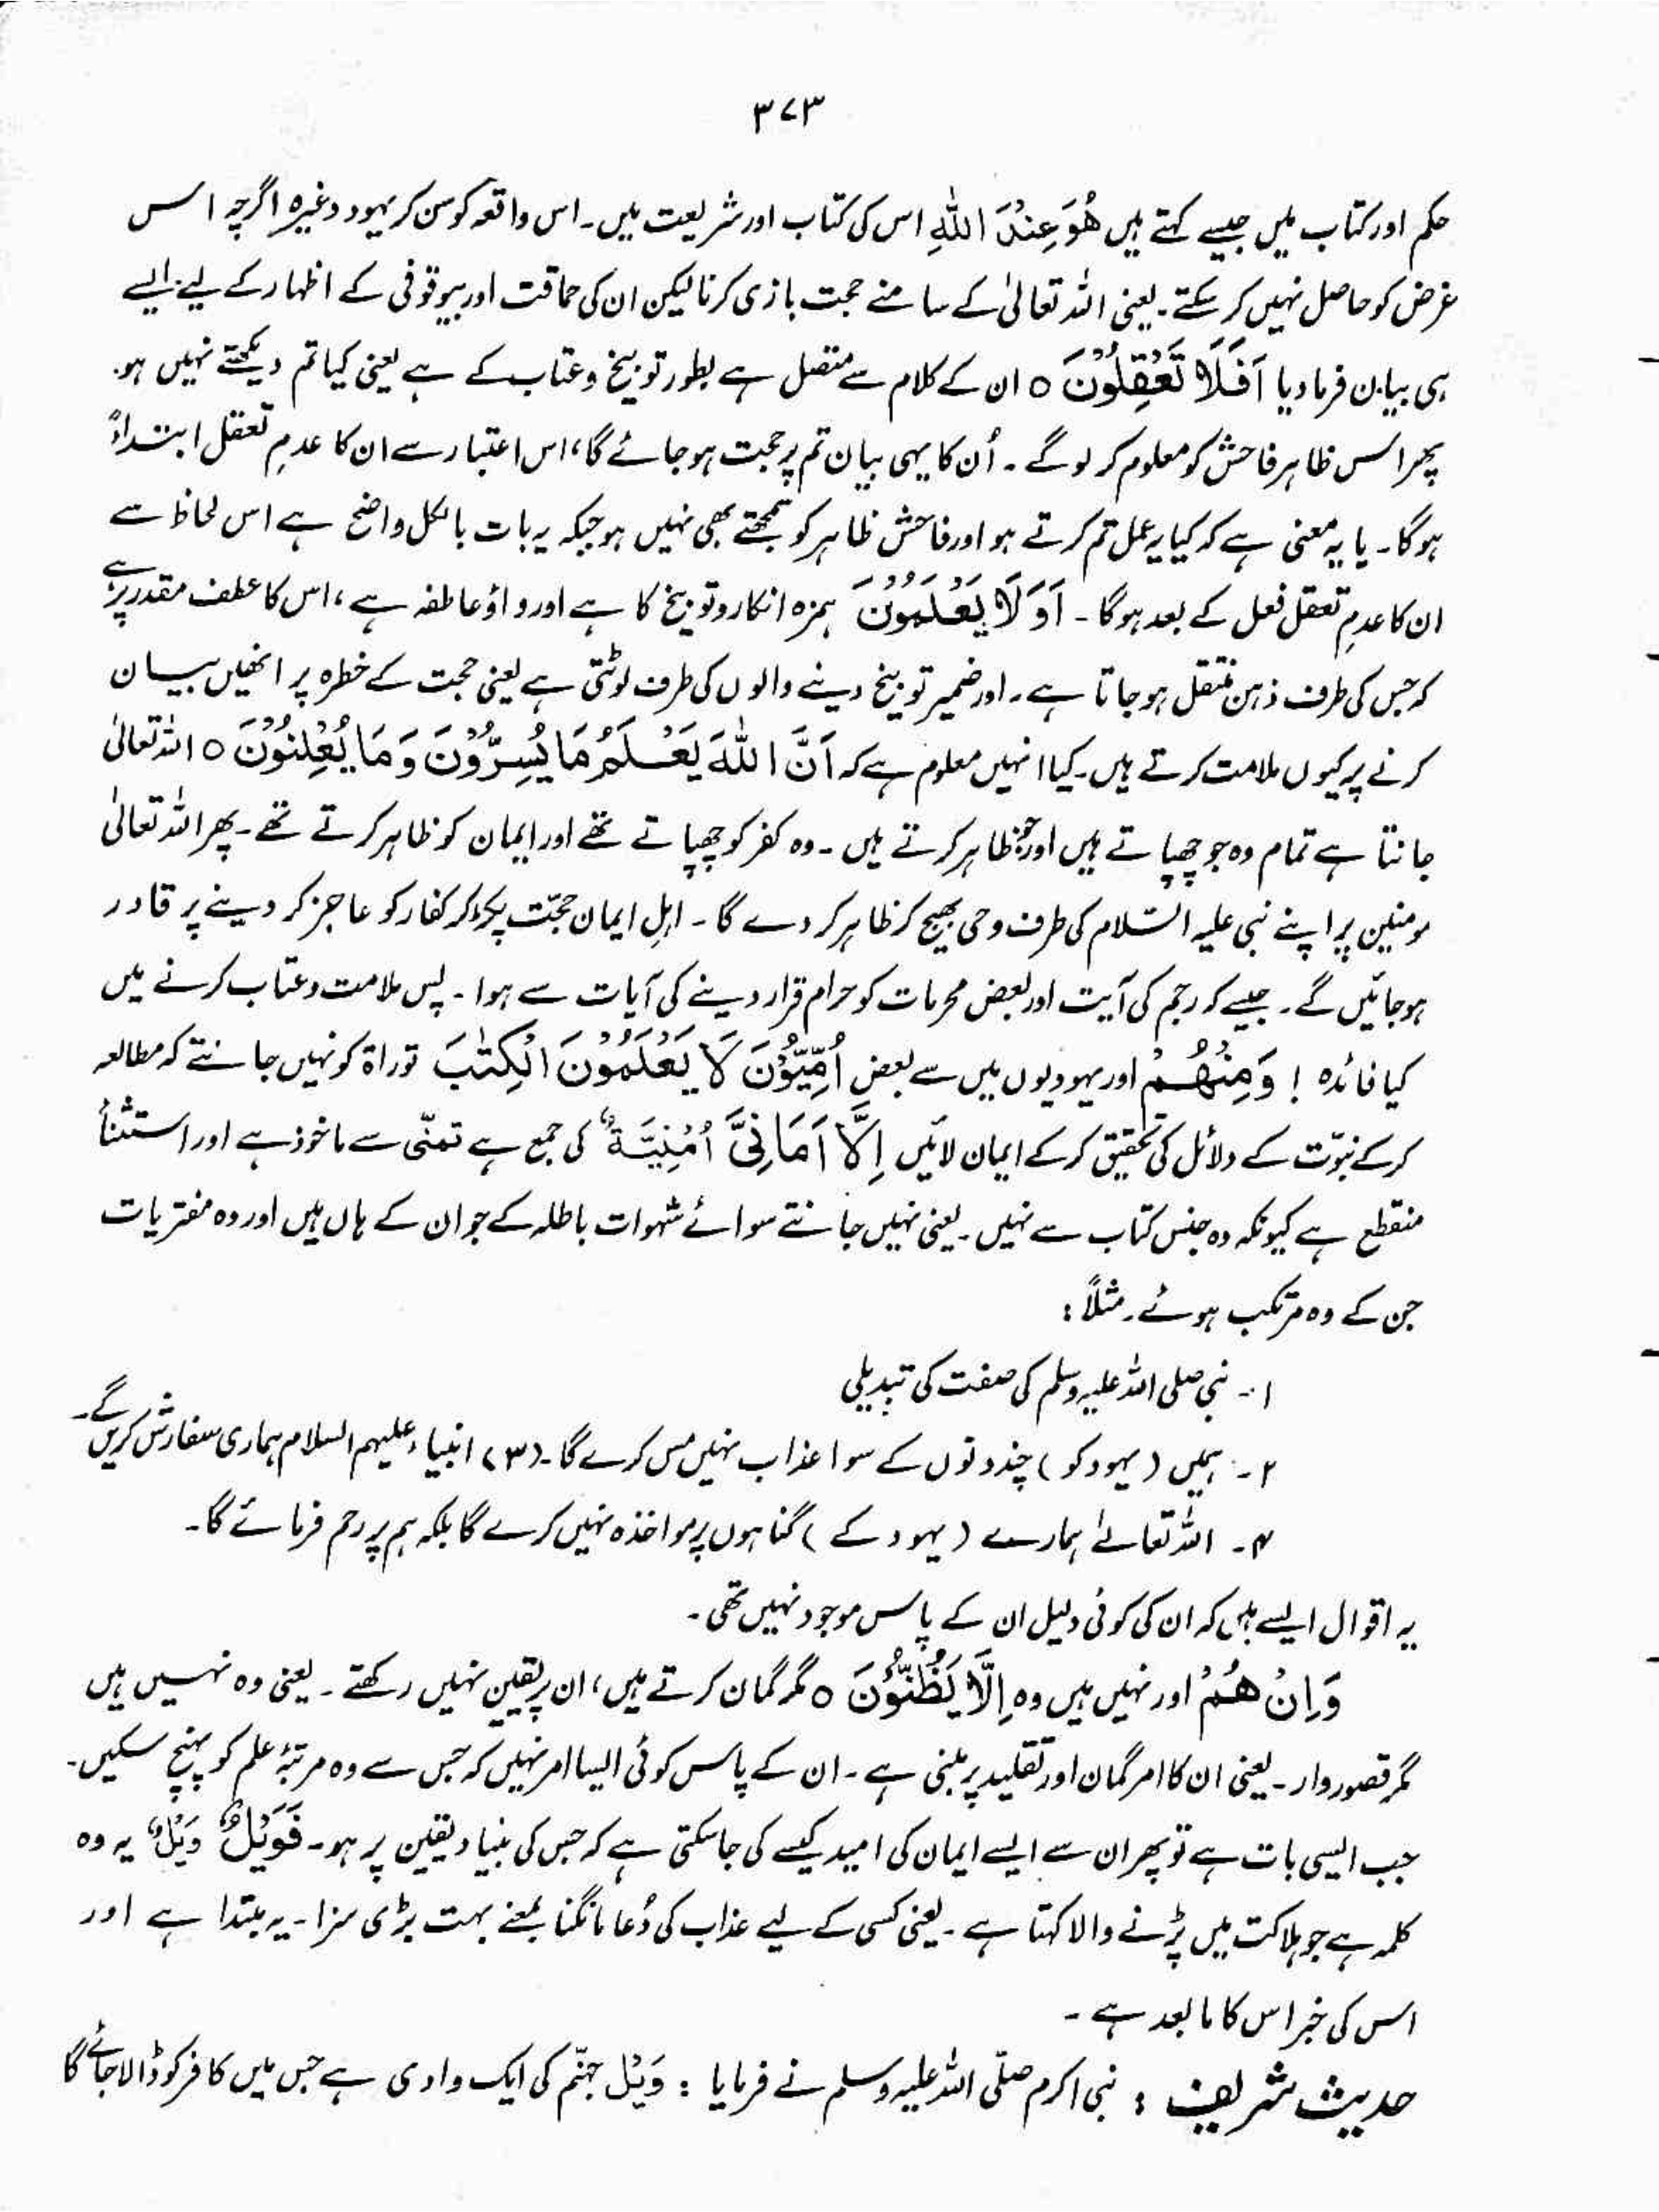 ۳۷۳
حکم اور کتاب میں جیسے کہتے ہیں هُوَ عِنْدَ اللّٰهِ اس کی کتاب اور شریعت میں۔ اس واقعہ کو سن کر یہود وغیرہ اگرچہ اس
غرض کو حاصل نہیں کر سکتے۔ یعنی اللہ تعالیٰ کے سامنے حجت بازی کرنا لیکن ان کی حماقت اور بیوقوفی کے اظہار کے لیے ایسے
ہی بیان فرما دیا اَفَلَا تَعْقِلُوْنَ ○ ان کے کلام سے متصل ہے بطور توبیخ و عتاب کے ہے یعنی کیا تم دیکھتے نہیں ہو۔
پھر اس ظاہر فاحش کو معلوم کر لو گے۔ اُن کا یہی بیان تم پر حجت ہو جائے گا، اس اعتبار سے ان کا عدمِ تعقل ابتداءً
ہوگا۔ یا یہ معنی ہے کہ کیا یہ عمل تم کرتے ہو اور فاحش ظاہر کو سمجھتے بھی نہیں ہو جبکہ یہ بات بالکل واضح ہے اس لحاظ سے
ان کا عدمِ تعقل فعل کے بعد ہوگا۔ اَوَ لَا يَعْلَمُوْنَ ہمزہ انکار و توبیخ کا ہے اور واؤ عاطفہ ہے، اس کا عطف مقدر پر ہے
کہ جس کی طرف ذہن منتقل ہو جاتا ہے۔ اور ضمیر توبیخ دینے والوں کی طرف لوٹتی ہے یعنی حجت کے خطرہ پر انھیں بیان
کرنے پر کیوں ملامت کرتے ہیں۔ کیا انہیں معلوم ہے کہ اَنَّ اللّٰهَ يَعْلَمُ مَا يُسِرُّوْنَ وَ مَا يُعْلِنُوْنَ ○ اللہ تعالیٰ
جانتا ہے تمام وہ جو چھپاتے ہیں اور جو ظاہر کرتے ہیں۔ وہ کفر کو چھپاتے تھے اور ایمان کو ظاہر کرتے تھے۔ پھر اللہ تعالیٰ
مومنین پر اپنے نبی علیہ السّلام کی طرف وحی بھیج کر ظاہر کر دے گا۔ اہلِ ایمان حجّت پکڑ کر کفار کو عاجز کر دینے پر قادر
ہو جائیں گے۔ جیسے کہ رجم کی آیت اور بعض محرمات کو حرام قرار دینے کی آیات سے ہوا۔ پس ملامت و عتاب کرنے میں
کیا فائدہ ! وَمِنْهُمْ اور یہودیوں میں سے بعض اُمِّيُّوْنَ لَا يَعْلَمُوْنَ الْكِتٰبَ توراۃ کو نہیں جانتے کہ مطالعہ
کر کے نبوّت کے دلائل کی تحقیق کر کے ایمان لائیں اِلَّا اَمَانِيَّ اُمْنِيَّةٌ کی جمع ہے تمنّی سے ماخوذ ہے اور استثناءُ
منقطع ہے کیونکہ وہ جنس کتاب سے نہیں۔ یعنی نہیں جانتے سوائے شہوات باطلہ کے جو ان کے ہاں ہیں اور وہ مفتریات
جن کے وہ مرتکب ہوئے۔ مثلاً :
۱۔ نبی صلی اللہ علیہ وسلم کی صفت کی تبدیلی
۲۔ ہمیں (یہود کو) چند دنوں کے سوا عذاب نہیں مس کرے گا۔ (۳) انبیاء علیہم السلام ہماری سفارش کریں گے۔
۴۔ اللہ تعالےٰ ہمارے (یہود کے) گناہوں پر مواخذہ نہیں کرے گا بلکہ ہم پر رحم فرمائے گا۔
یہ اقوال ایسے ہیں کہ ان کی کوئی دلیل ان کے پاس موجود نہیں تھی۔
وَاِنْ هُمْ اور نہیں ہیں وہ اِلَّا يَظُنُّوْنَ ○ مگر گمان کرتے ہیں، ان پر یقین نہیں رکھتے۔ یعنی وہ نہیں ہیں
مگر قصور وار۔ یعنی ان کا امر گمان اور تقلید پر مبنی ہے۔ ان کے پاس کوئی ایسا امر نہیں کہ جس سے وہ مرتبۂ علم کو پہنچ سکیں۔
جب ایسی بات ہے تو پھر ان سے ایسے ایمان کی امید کیسے کی جا سکتی ہے کہ جس کی بنیاد یقین پر ہو۔ فَوَيْلٌ وَيْلٌ یہ وہ
کلمہ ہے جو ہلاکت میں پڑنے والا کہتا ہے۔ یعنی کسی کے لیے عذاب کی دُعا مانگنا بمعنے بہت بڑی سزا۔ یہ مبتدا ہے اور
اس کی خبر اس کا مابعد ہے۔
حدیث شریف : نبی اکرم صلّی اللہ علیہ وسلم نے فرمایا : وَیْل جہنّم کی ایک وادی ہے جس میں کافر کو ڈالا جائے گا